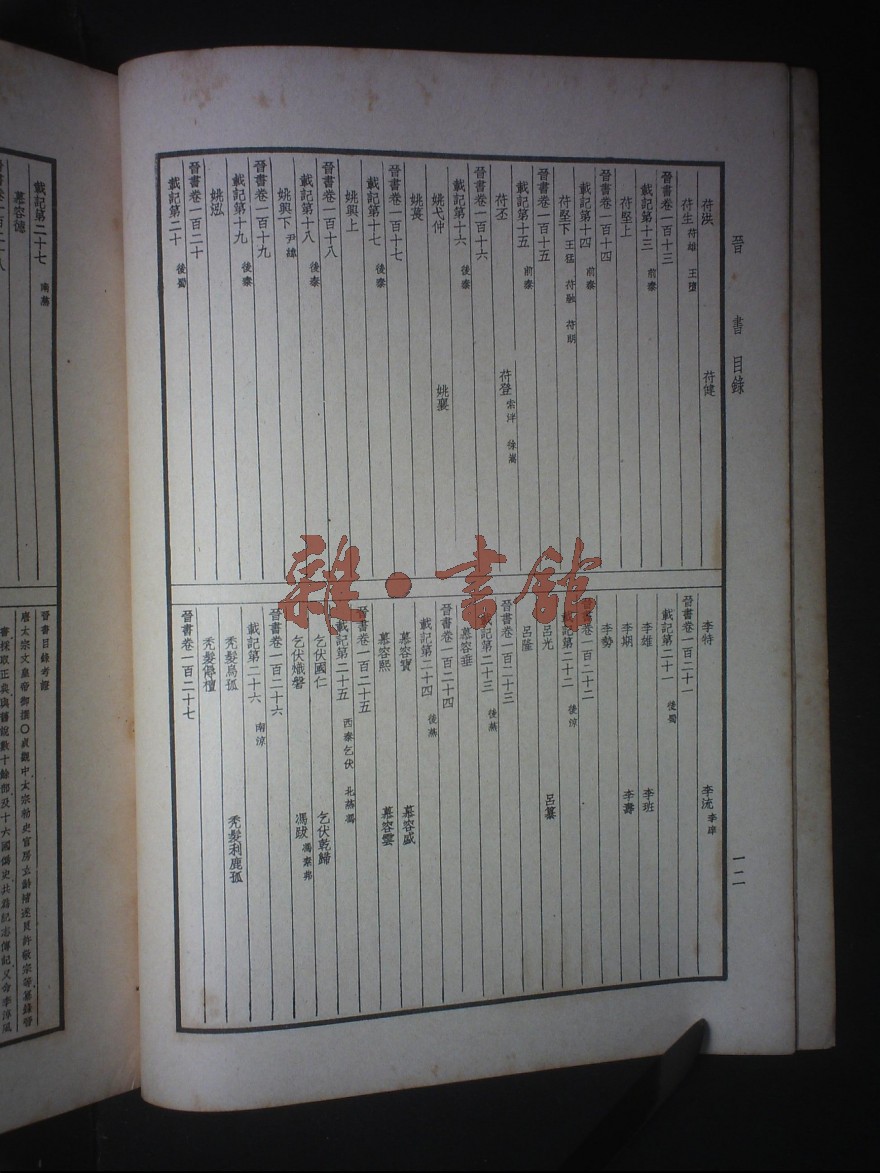 晉書目錄
一二
苻洪 苻健
苻生 苻雄 王墮
晉書卷一百十三
載記第十三 前秦
苻堅上
晉書卷一百十四
載記第十四 前秦
苻堅下 王猛 苻融 苻朗
晉書卷一百十五
載記第十五 前秦
苻丕 苻登 索泮 徐嵩
晉書卷一百十六
載記第十六 後秦
姚弋仲 姚襄
姚萇
晉書卷一百十七
載記第十七 後秦
姚興上
晉書卷一百十八
載記第十八 後秦
姚興下 尹緯
晉書卷一百十九
載記第十九 後秦
姚泓
晉書卷一百二十
載記第二十 後蜀
李特 李流 李庠
晉書卷一百二十一
載記第二十一 後蜀
李雄 李班
李期 李壽
李勢
晉書卷一百二十二
載記第二十二 後涼
呂光 呂纂
呂隆
晉書卷一百二十三
載記第二十三 後燕
慕容垂
晉書卷一百二十四
載記第二十四 後燕
慕容寶 慕容盛
慕容熙 慕容雲
晉書卷一百二十五
載記第二十五 西秦乞伏 北燕馮
乞伏國仁 乞伏乾歸
乞伏熾磐 馮跋 馮素弗
晉書卷一百二十六
載記第二十六 南涼
禿髮烏孤 禿髮利鹿孤
禿髮傉檀
晉書卷一百二十七
載記第二十七 南燕
慕容德
晉書卷一百二十八
晉書目錄考證
唐太宗文皇帝御撰○貞觀中太宗勅史官房玄齡褚遂良許敬宗等纂錄晉
書採取正典與舊說數十餘部及十六國僞史共爲紀志傳記又命李淳風
雜·書館